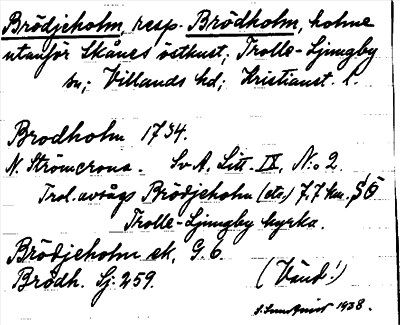 Brödjeholm, resp. Brödholm, holme
utanför Skånes östkust; Trolle-Ljungby
sn; Villands hd; Kristianst. l.
Brodholm 1734.
N. Strömcrona. SvA. Litt. IX, N:o 2.
Trol. avsågs Brödjeholm (etc.) 7,7 km. SÖ
Trolle-Ljungby kyrka.
Brödjeholm ek. G. 6.
Brödh. Sj. 259.
(Vänd!)
1938.